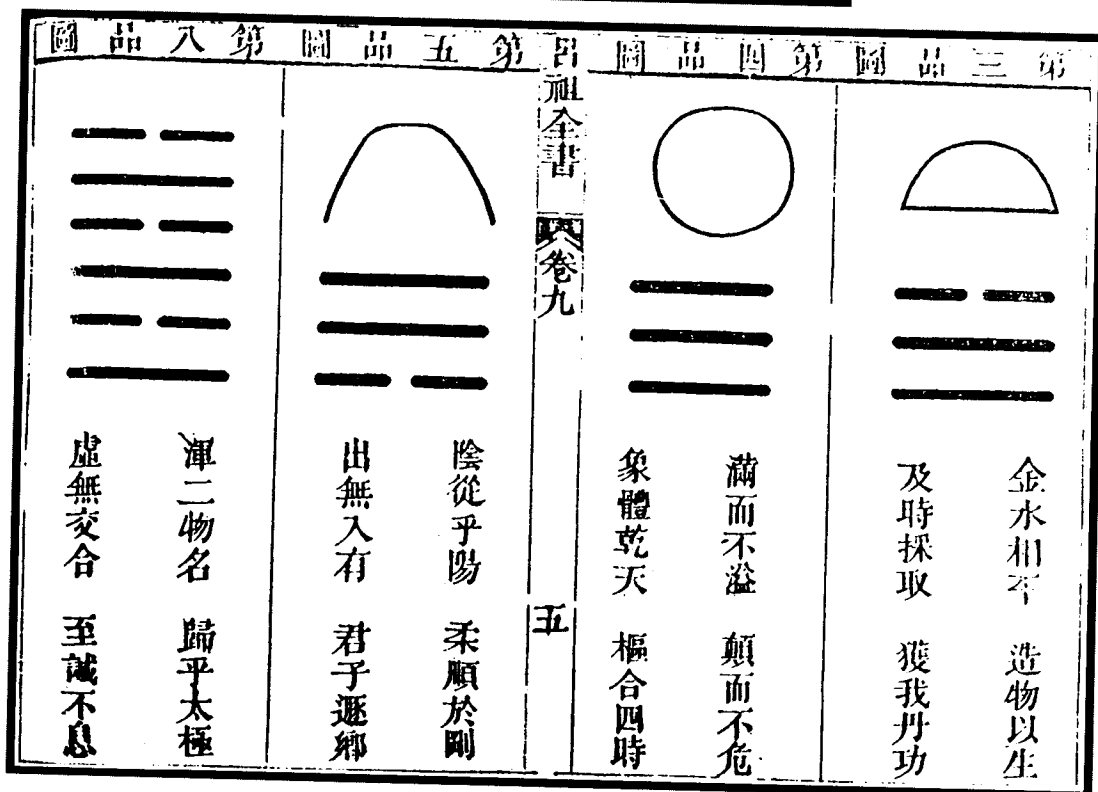 第三品圖
金水相平 造物以生
及時採取 獲我丹功
第四品圖
滿而不溢 顛而不危
象體乾天 樞合四時
呂祖全書 卷九 五
第五品圖
陰從乎陽 柔順於剛
出無入有 君子遯鄉
第八品圖
渾二物名 歸乎太極
虛無交合 至誠不息